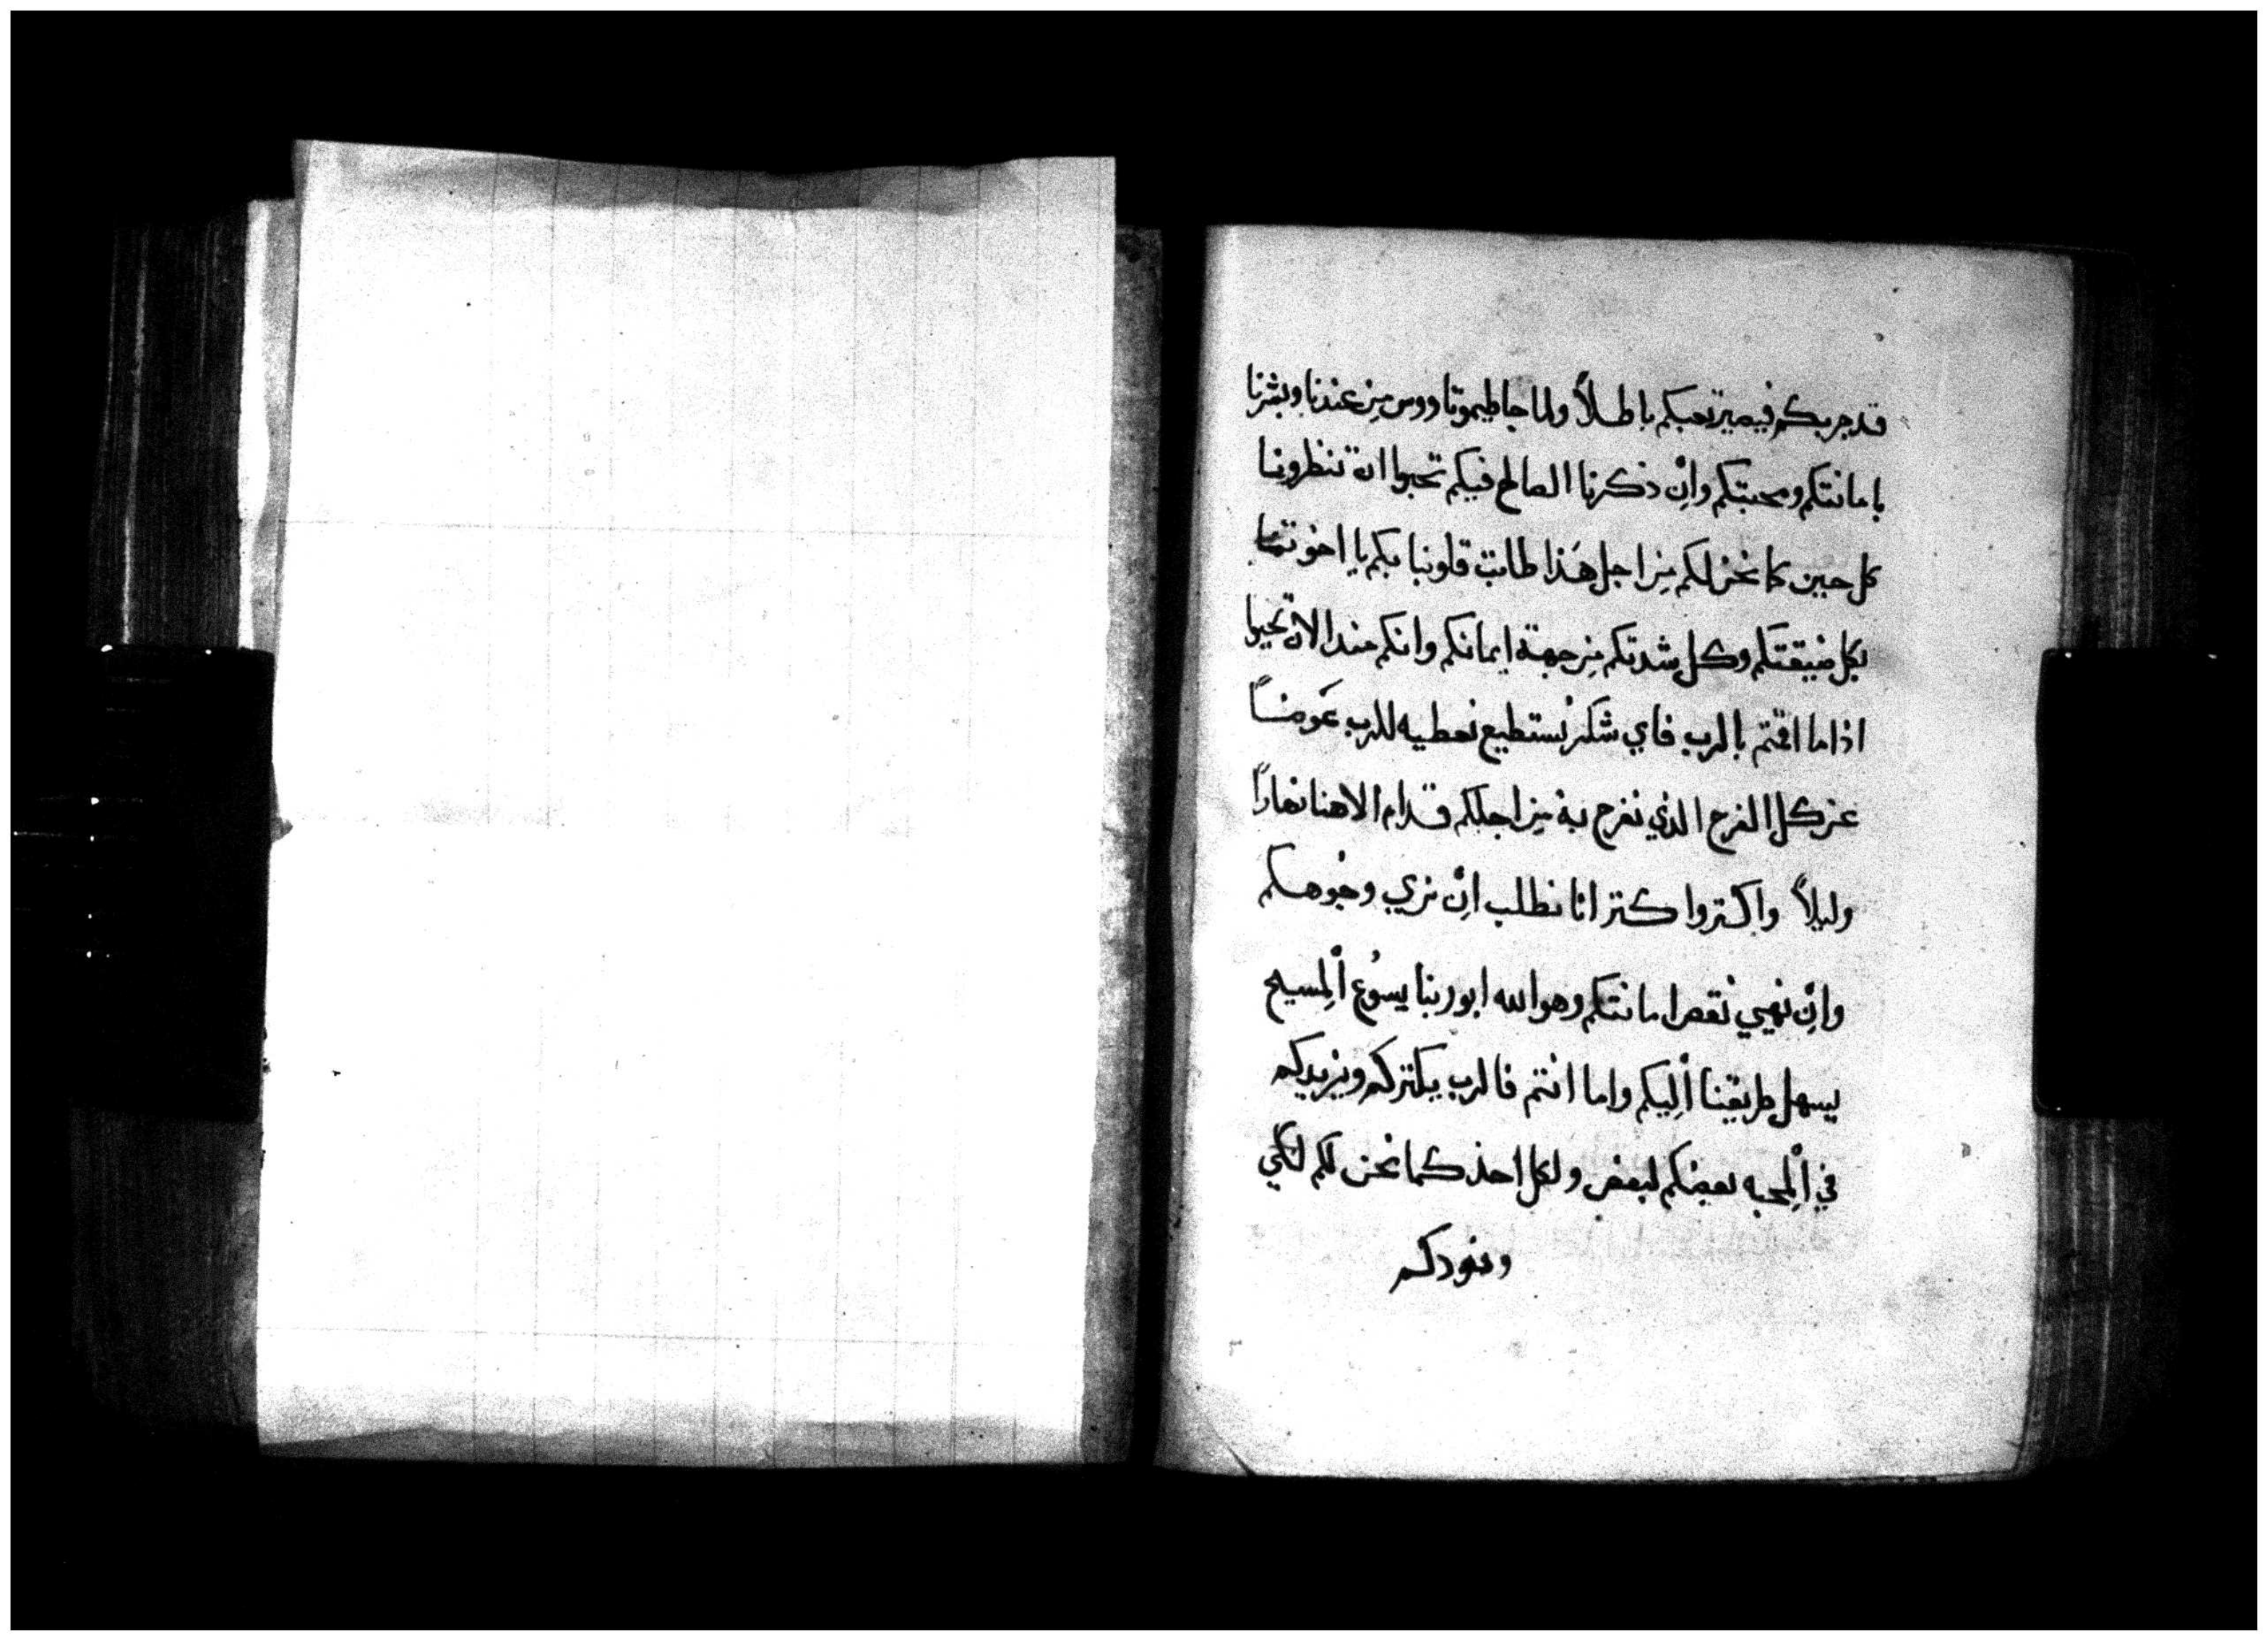 قد جربكم فيصير تعبكم باطلاً ولما جا طيموتاووس من عندنا وبشرنا
بامانتكم ومحبتكم وان ذكرنا الصالح فيكم تحبوا ان تنظرونا
كل حين كما نحن لكم من اجل هذا طابت قلوبنا بكم يا اخوتنا
بكل ضيقتكم وكل شدتكم من جهة ايمانكم وانكم مند الان تحيوا
اذا ما اقمتم بالرب فاي شكر نستطيع نعطيه للرب عوضاً
عن كل الفرح الذي نفرح به من اجلكم قدام الاهنا نهاراً
وليلاً واكتروا كتر انا نطلب ان نري وجوهكم
وان نهيي نقص امانتكم وهو الله ابو ربنا يسوع المسيح
يسهل طريقنا اليكم واما انتم فالرب يكتركم ويزيدكم
في المحبه بعضكم لبعض ولكل احد كما نحن لكم لكي